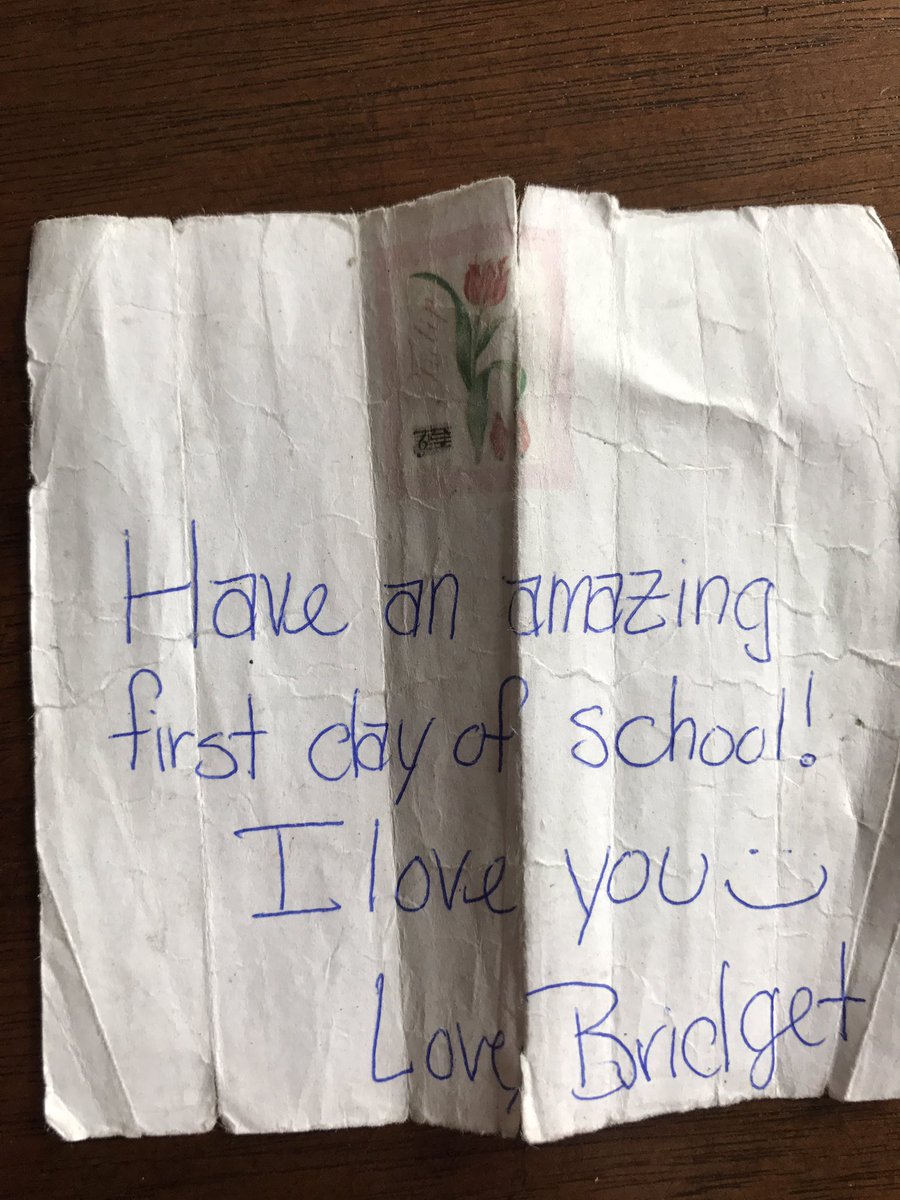 Tulip
Have an amazing
first day of school!
I love you :)
Love, Bridget